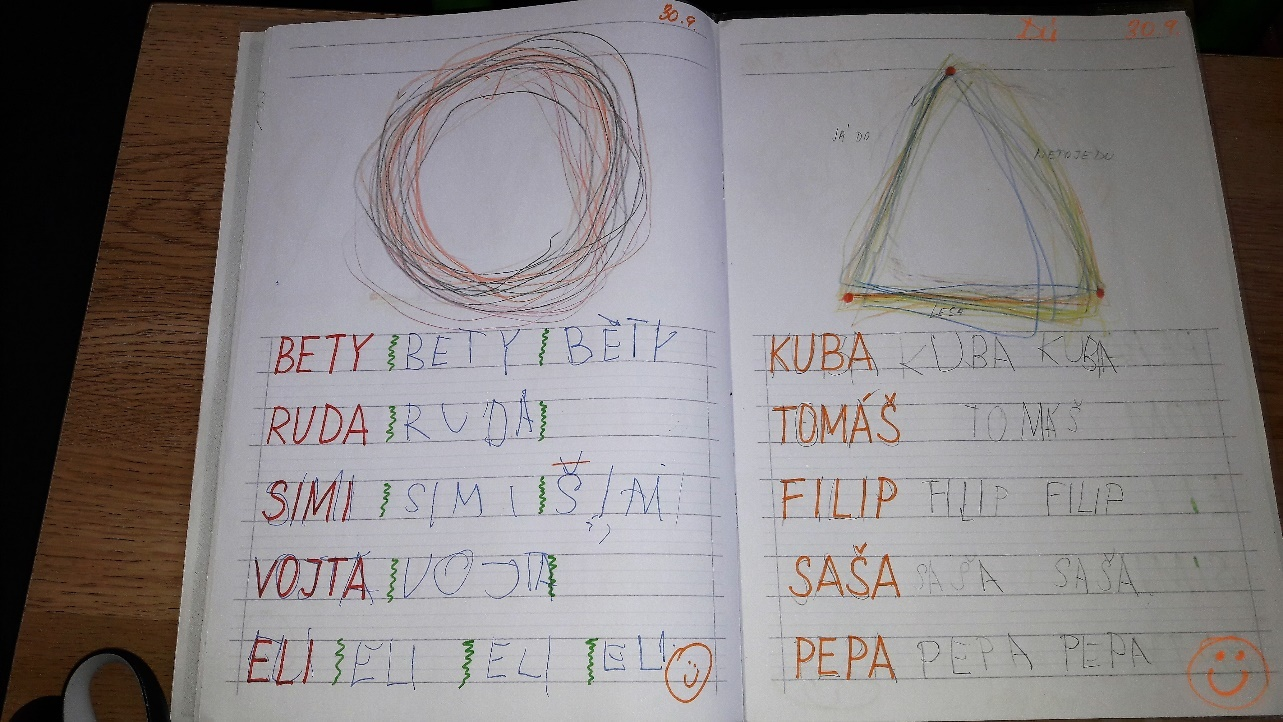 30.9.
BETY BETY BĚTY
RUDA RUDA
SIMI SIMI ŠIMI
VOJTA VOJTA
ELI ELI ELI ELI
DÚ 30.9
JÁ DO
NEPOJEDU
KUBA KUBA KUBA
TOMÁŠ TOMÁŠ
FILIP FILIP FILIP
SAŠA SAŠA SAŠA
PEPA PEPA PEPA